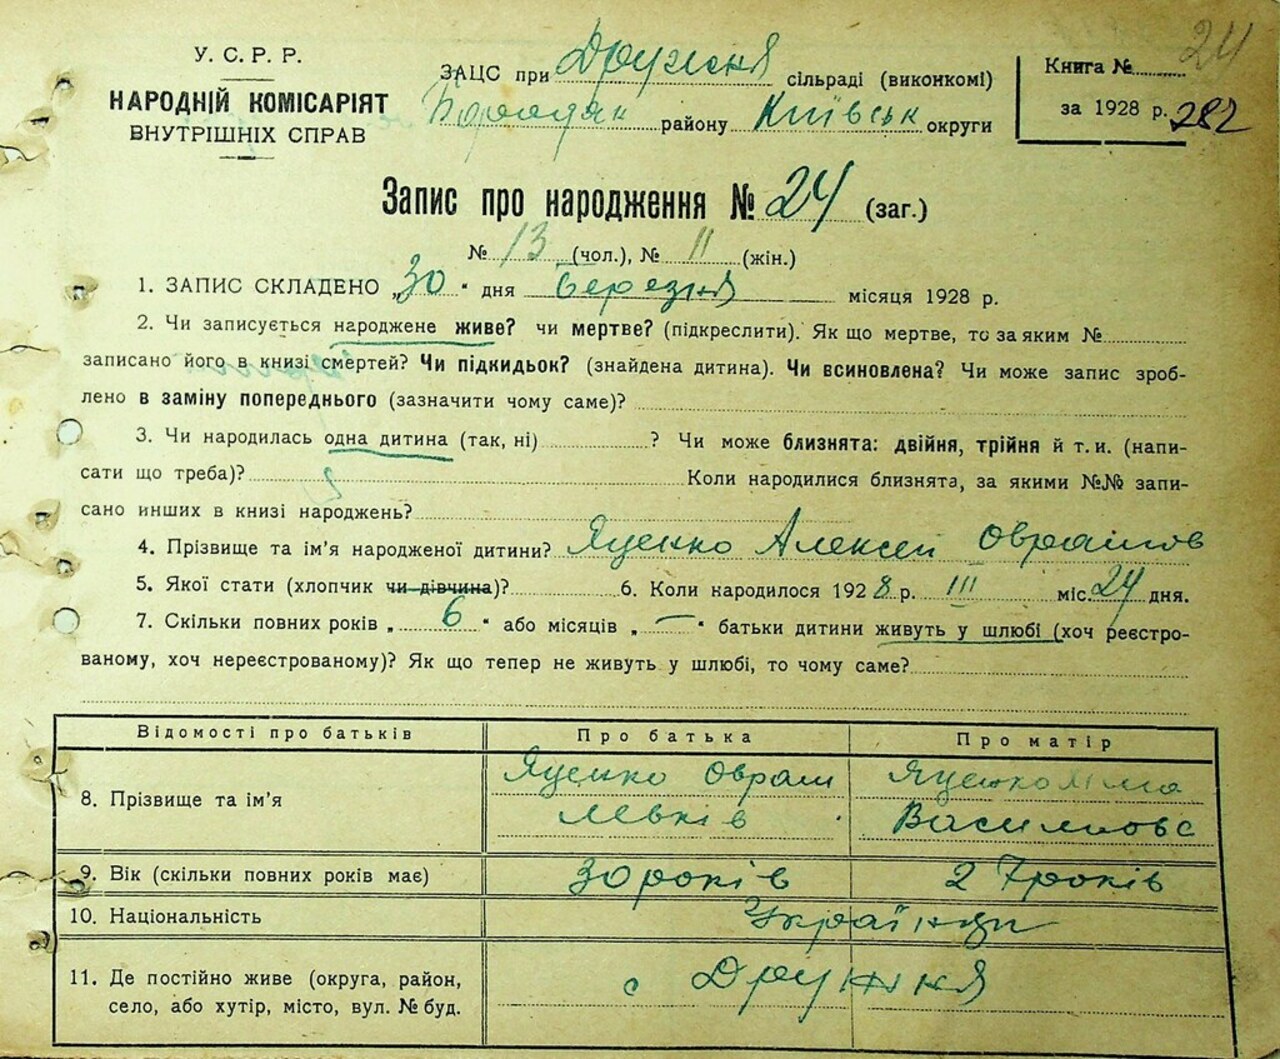 24
У. С. Р. Р.
НАРОДНІЙ КОМІСАРІЯТ
ВНУТРІШНІХ СПРАВ
ЗАЦС при Дружня сільраді (виконкомі)
Бородян району Київськ округи
Книга №
за 1928 р. 282
Запис про народження № 24 (заг.)
№ 13 (чол.), № 11 (жін.)
1. ЗАПИС СКЛАДЕНО „30“ дня березня місяця 1928 р.
2. Чи записується народжене живе? чи мертве? (підкреслити). Як що мертве, то за яким №
записано його в книзі смертей? Чи підкидьок? (знайдена дитина). Чи всиновлена? Чи може запис зроб-
лено в заміну попереднього (зазначити чому саме)?
3. Чи народилась одна дитина (так, ні) ? Чи може близнята: двійня, трійня й т. и. (напи-
сати що треба)? Коли народилися близнята, за якими №№ запи-
сано инших в книзі народжень?
4. Прізвище та ім’я народженої дитини? Яценко Алексей Овраамов
5. Якої стати (хлопчик чи дівчина)? 6. Коли народилося 1928 р. III міс. 24 дня.
7. Скільки повних років „6“ або місяців „—“ батьки дитини живуть у шлюбі (хоч реєстро-
ваному, хоч нереєстрованому)? Як що тепер не живуть у шлюбі, то чому саме?
Відомості про батьків Про батька Про матір
8. Прізвище та ім’я Яценко Оврам Яценко
Левків Василиовс
9. Вік (скільки повних років має) 30 років 27 років
10. Національність Українци
11. Де постійно живе (округа, район,
село, або хутір, місто, вул. № буд. с Дружня